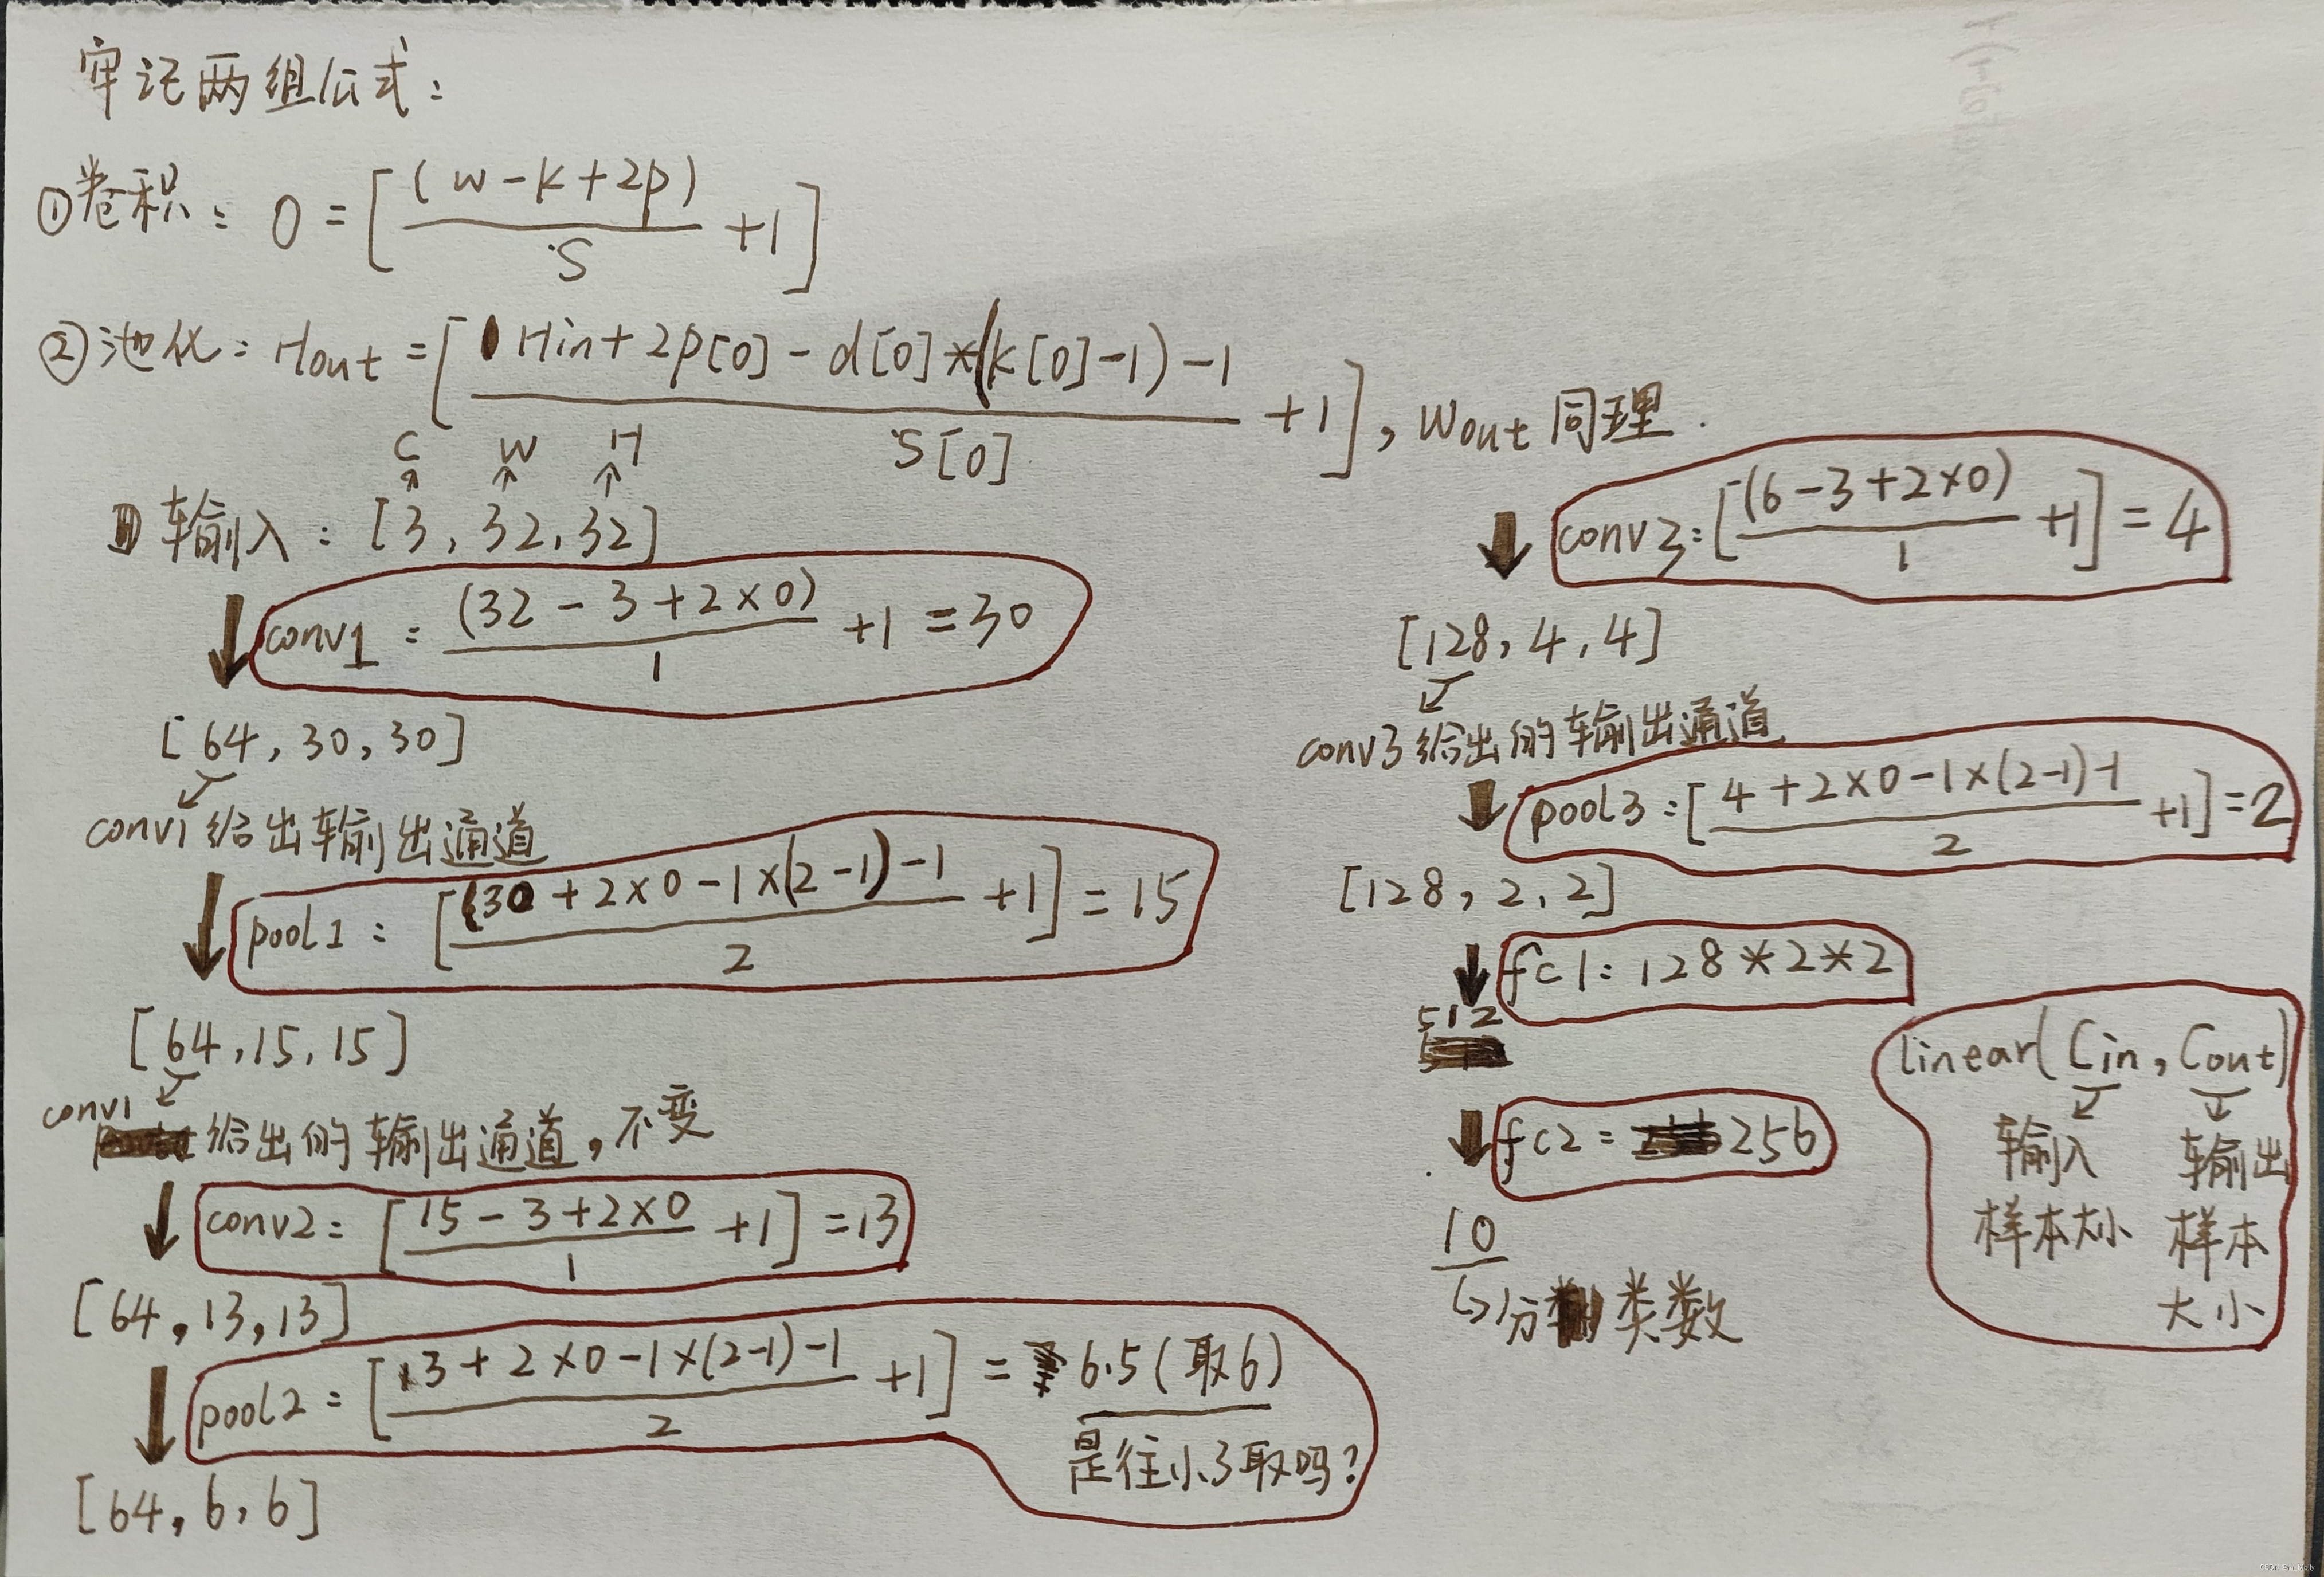 牢记两组公式：
①卷积： O = [ (w-k+2p) / S +1 ]
②池化： Hout = [ Hin+2p[0]-d[0]*(k[0]-1)-1 / S[0] +1 ], Wout 同理.
C W H
输入：[3, 32, 32]
conv1 : (32-3+2×0) / 1 +1 =30
[64, 30, 30]
conv1 给出输出通道
pool1 : [ (30+2×0-1×(2-1)-1 / 2 +1 ] = 15
[64, 15, 15]
conv1
给出的输出通道，不变
conv2 = [ 15-3+2×0 / 1 +1 ] =13
[64, 13, 13]
pool2 = [ 13+2×0-1×(2-1)-1 / 2 +1 ] = 6.5(取6)
是往小了取吗?
[64, 6, 6]
conv3: [ (6-3+2×0) / 1 +1 ] = 4
[128, 4, 4]
conv3 给出的输出通道
pool3 : [ 4+2×0-1×(2-1)-1 / 2 +1 ] =2
[128, 2, 2]
fc1: 128*2*2
512
fc2 = 256
10
分类数
linear(Cin, Cout)
输入 输出
样本大小 样本
大小